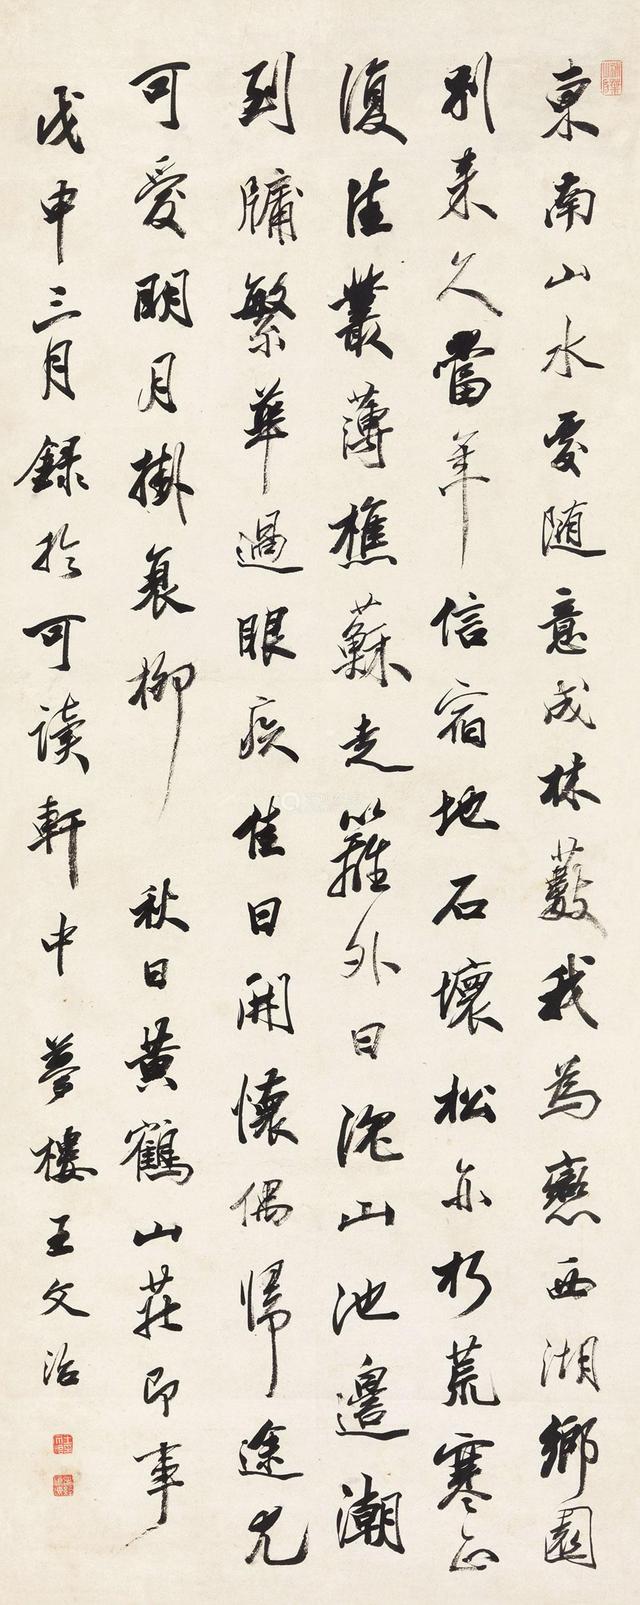 東南山水随意成林藪我為戀西湖鄉園
別来久當年信宿地石壞松亦朽荒寒正
復佳叢薄樵蘇走籬外日沈山池邊潮
到牖繁華過眼疾佳日開懷偶歸途尤
可愛明月掛衰柳 秋日黃鶴山莊即事
戊申三月録於可讀軒中 夢樓王文治